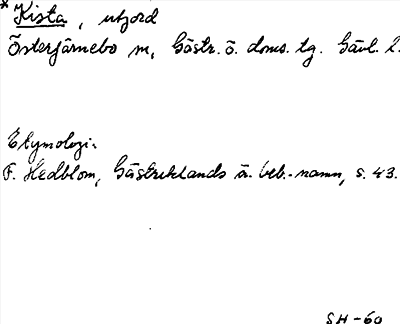 * Kista, utjord
Österfärnebo sn, Gästr. ö. doms. tg. Gävl. l.
Etymologi:
F. Hedblom, Gästriklands ä. beb.-namn, s. 43.
SH-60